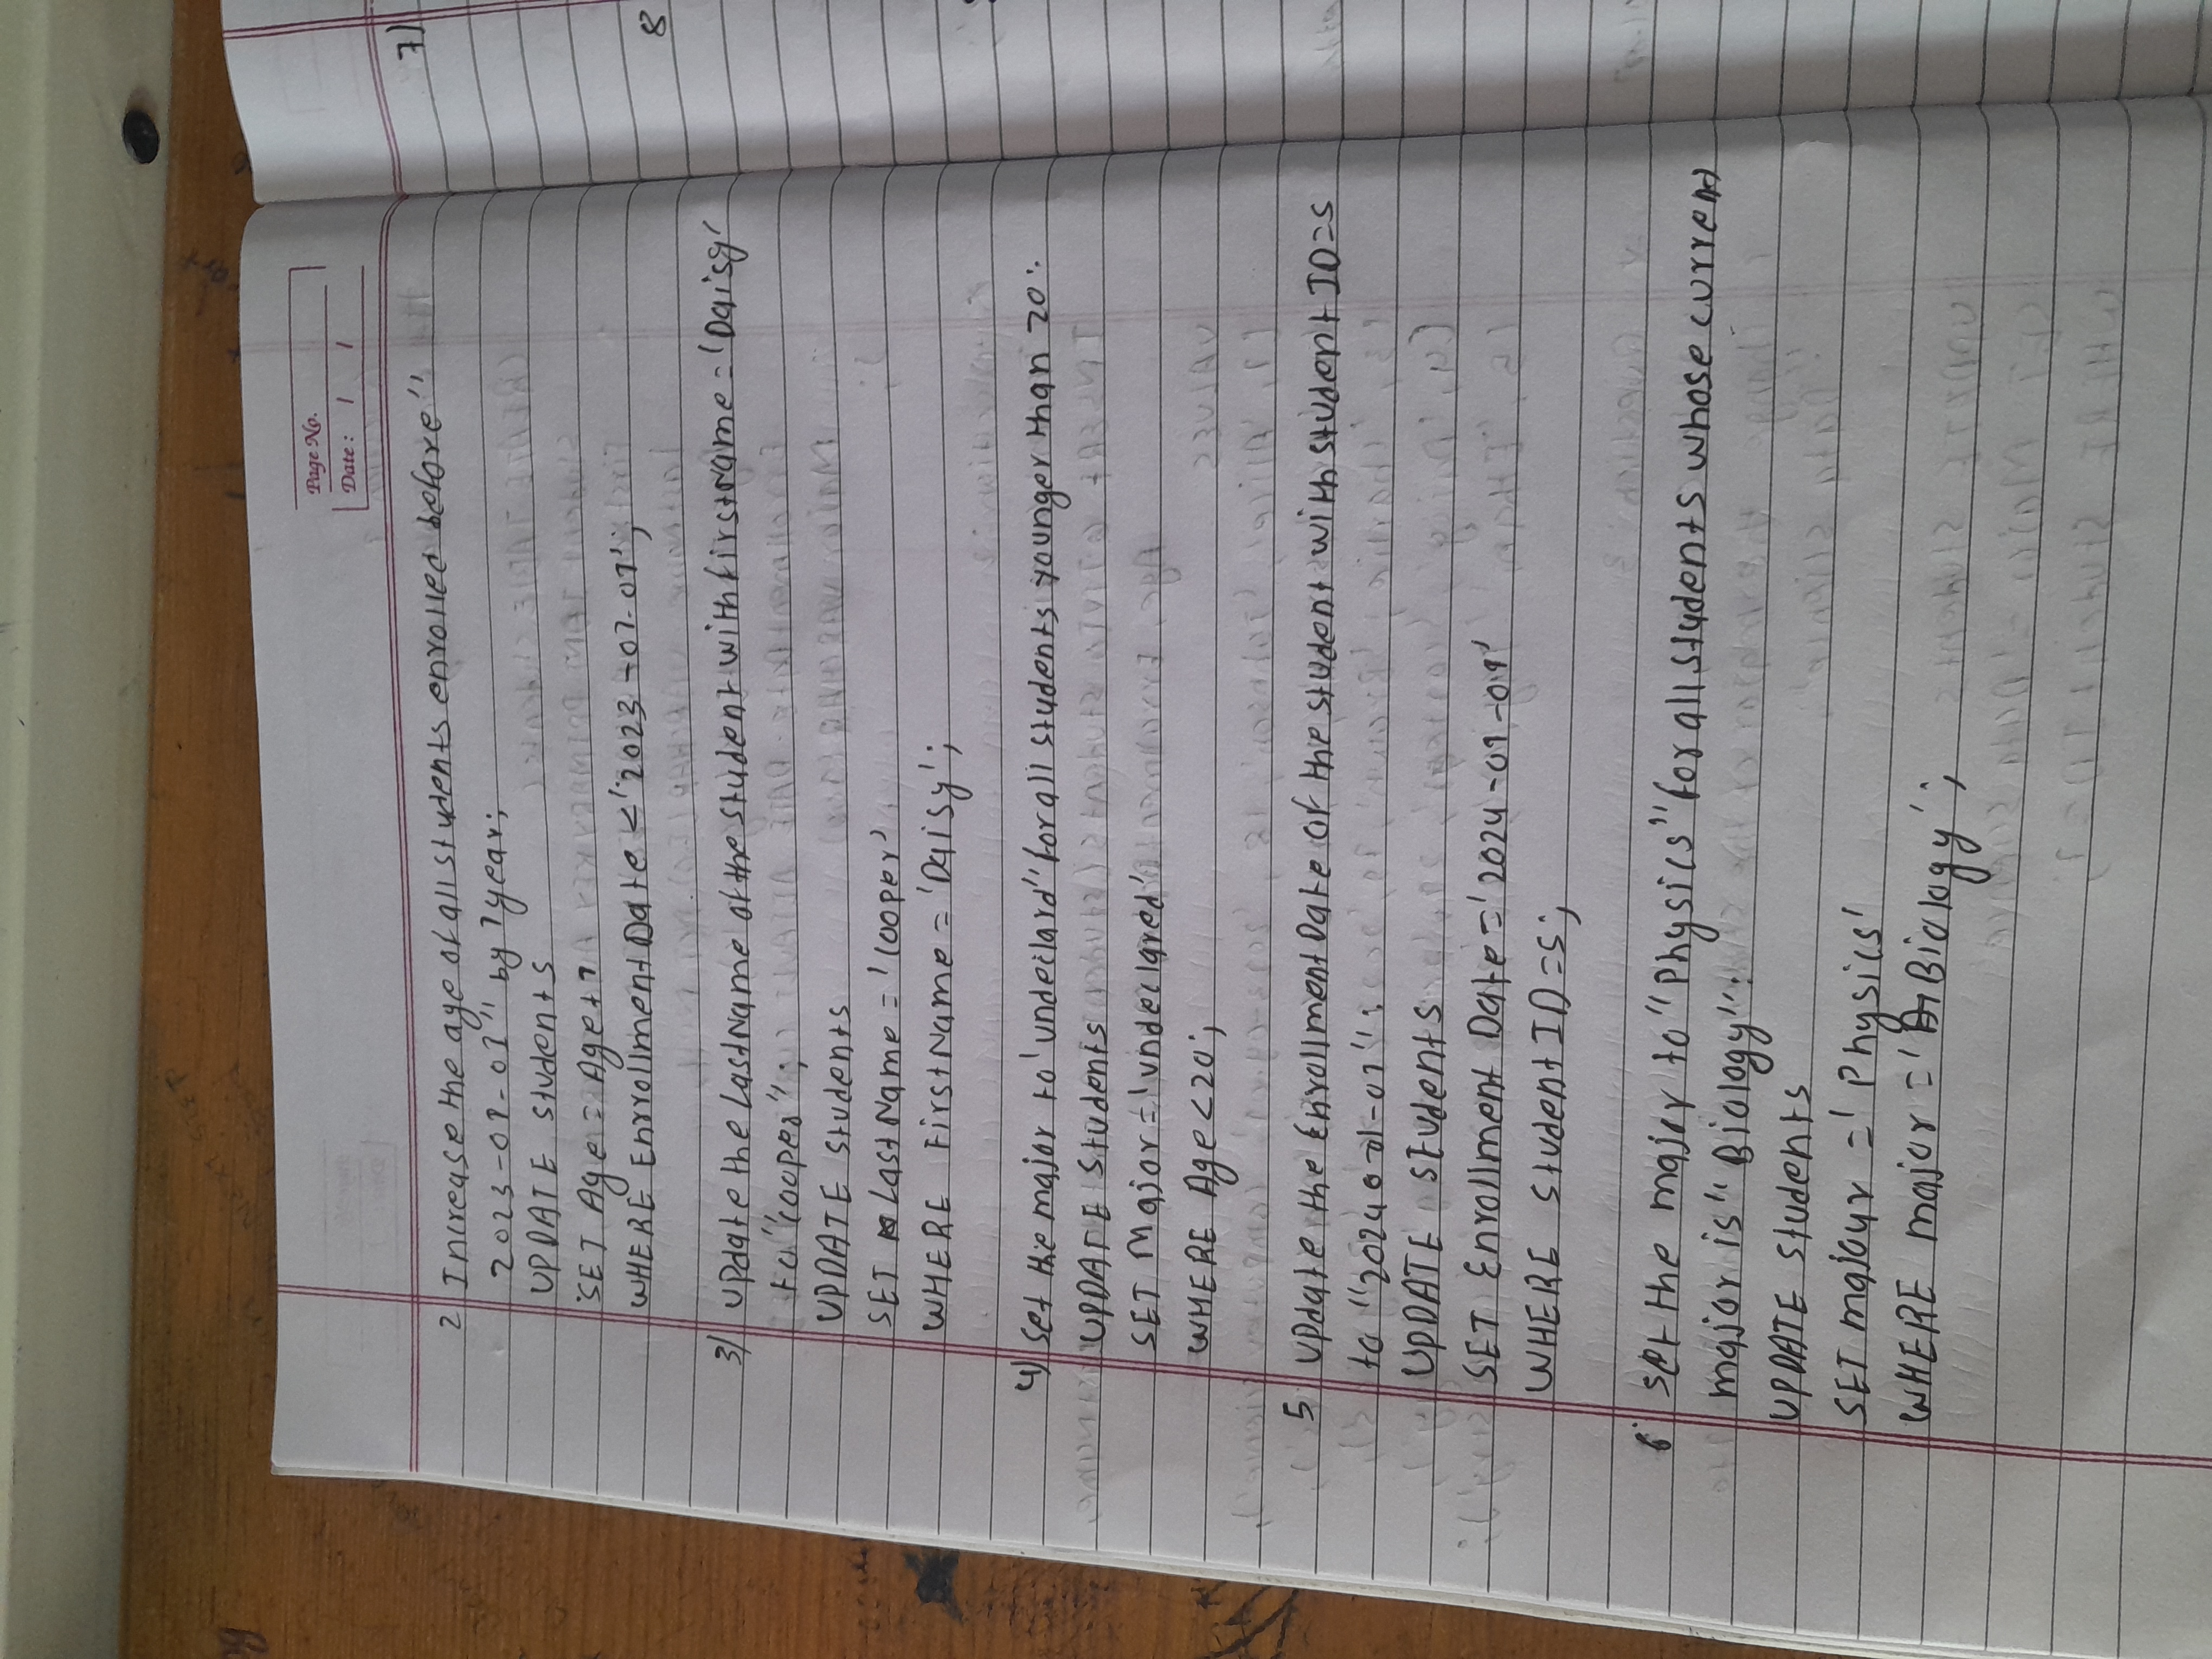 Page No.
Date: / /
2 Increase the age of all students enrolled before"
2023-01-01" by 1year;
UPDATE students
SET Age = Age+1
WHERE EnrrollmentDate <'2023-01-01';
3) update the LastName of the student with firstName = 'Daisy'
to "cooper";
UPDATE students
SET LastName = 'Cooper'
WHERE FirstName = 'Daisy';
4) set the major to 'undeclard" for all students younger than 20:
UPDATE students
SET Major = 'undeclared'
WHERE Age <20;
5 update the EnrollmentDate of the student with student ID=5
to "2024 01-01":
UPDATE students
SET Enrollment Date = '2024-01-01'
WHERE student ID=5;
6 set the major to "Physics" for all students whose current
major is "Biology":
UPDATE students
SET majour = 'Physics'
WHERE major = 'Biology';
7)
8